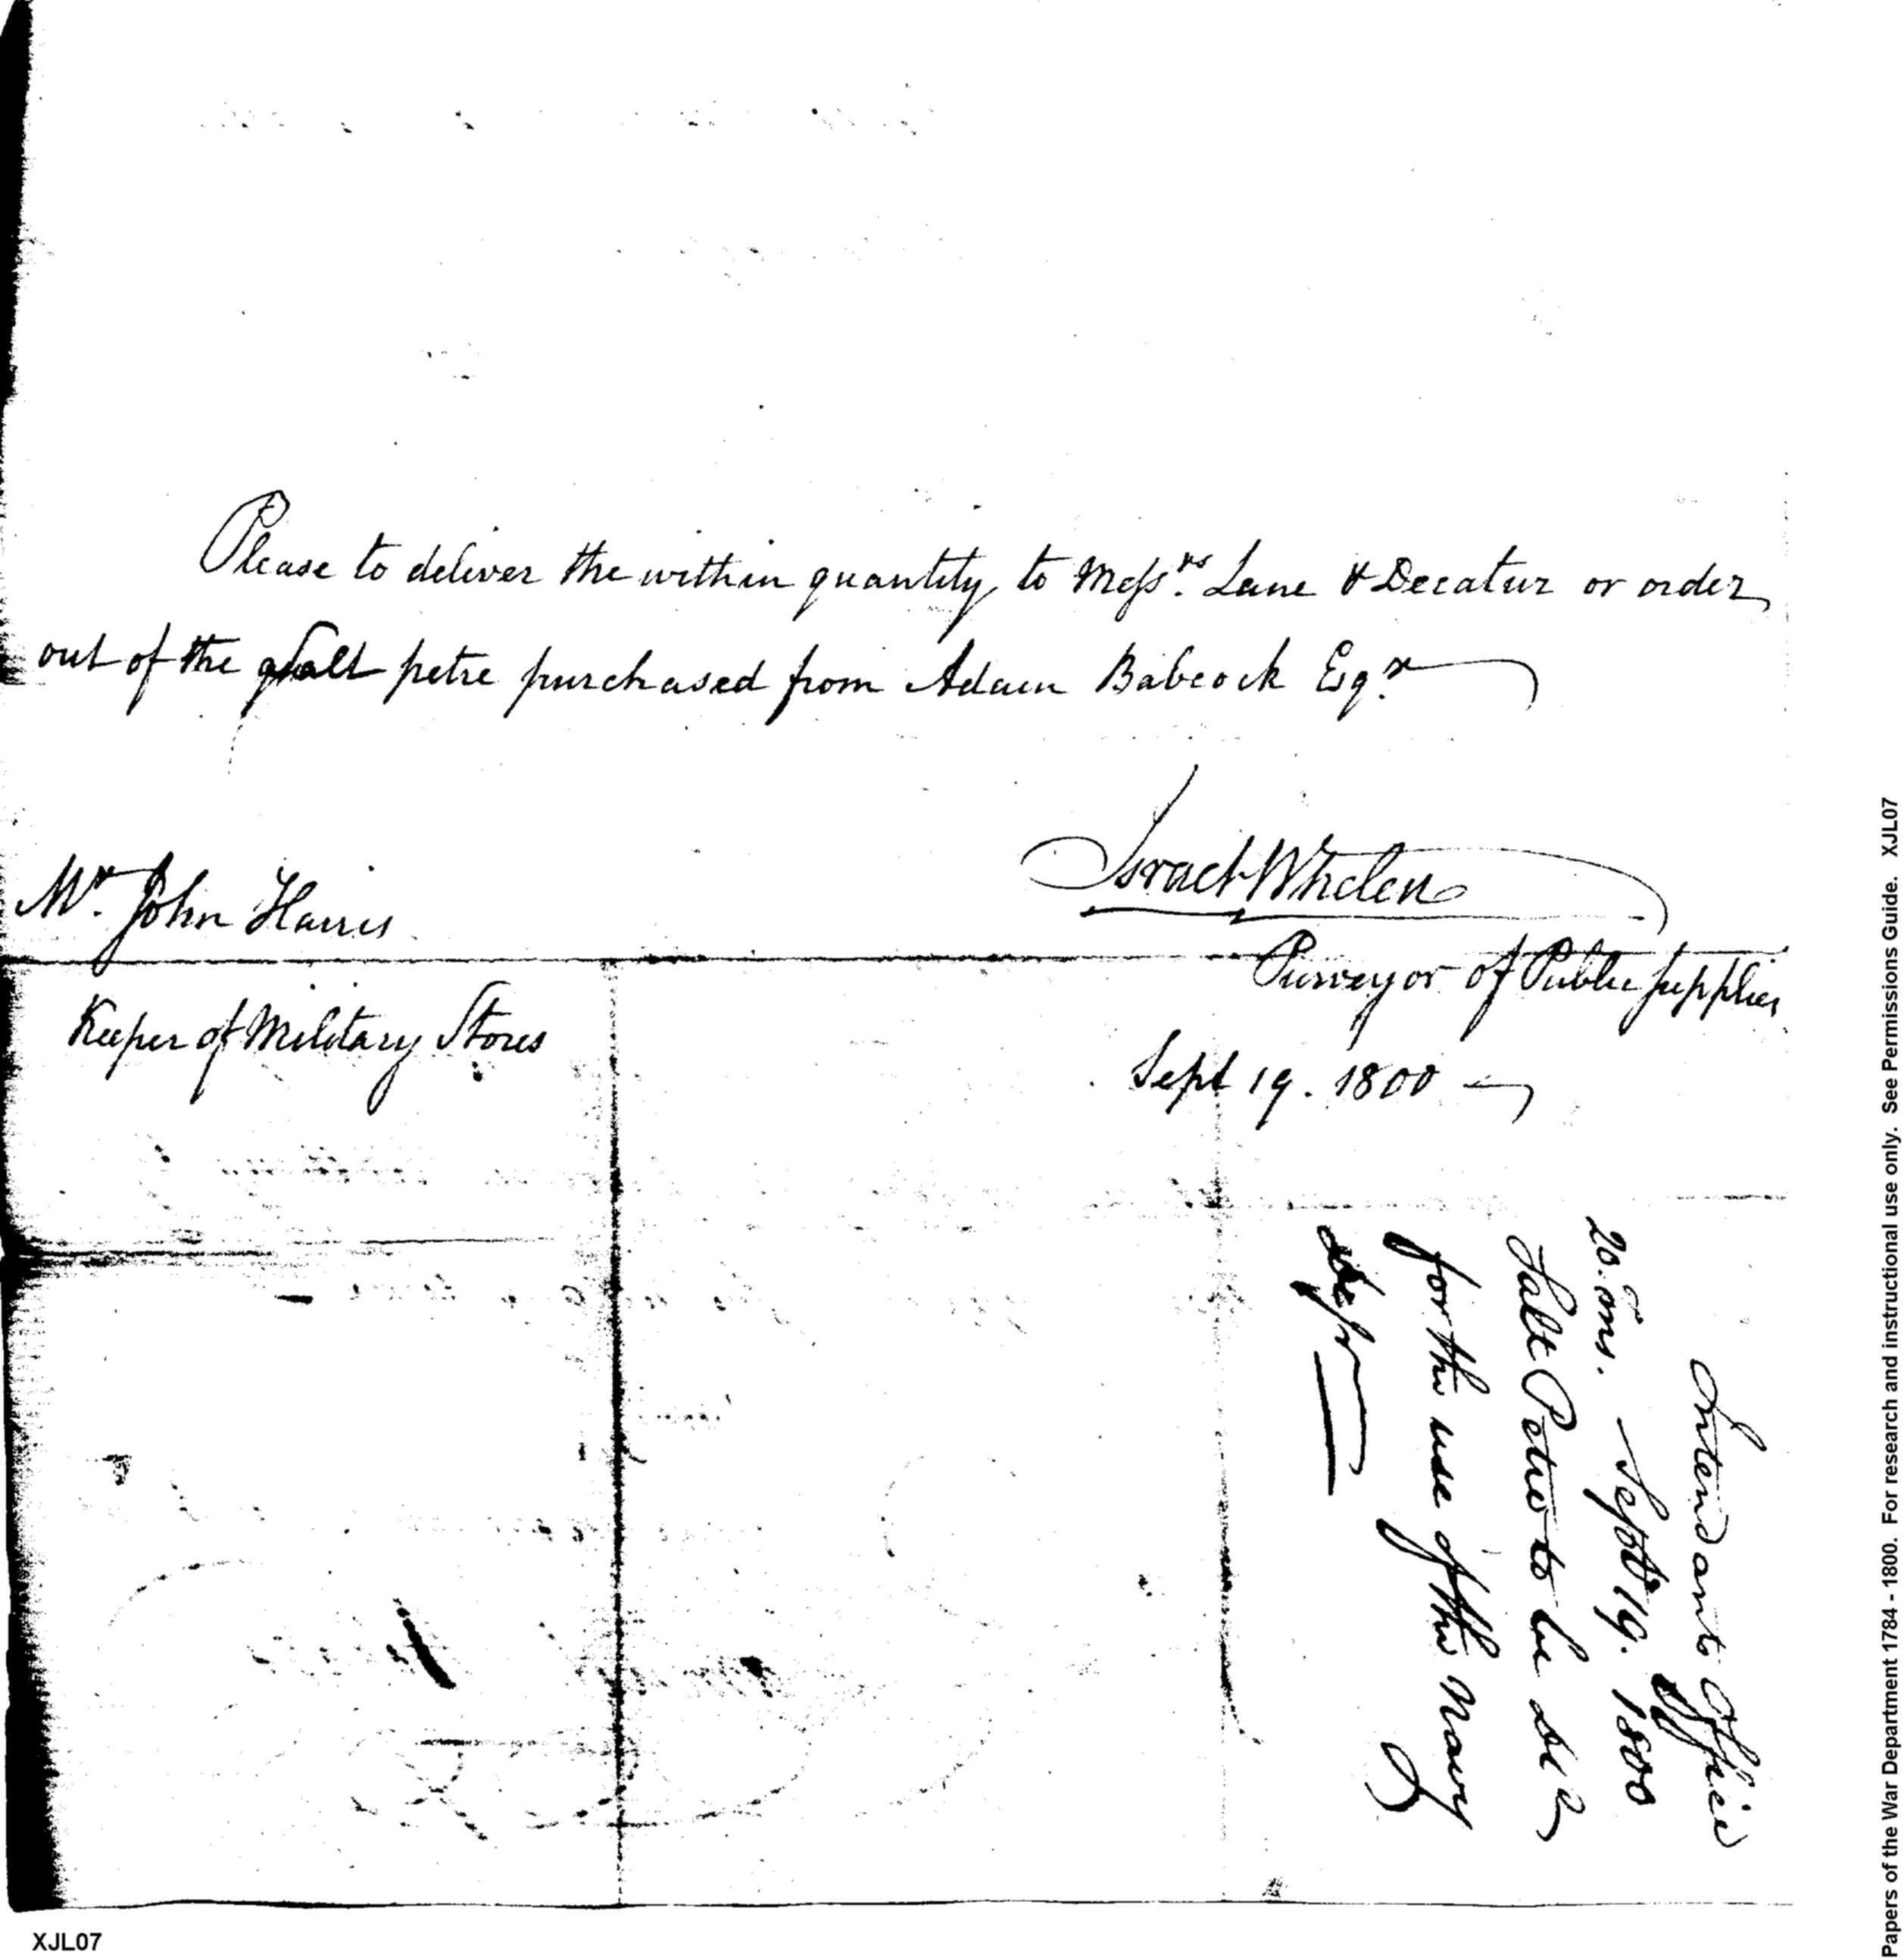 Please to deliver the within quantity to Messrs. Lane & Decatur or order
out of the salt petre purchased from Adam Babcock Esqr.
Israel Whelen
Mr. John Harris
Purveyor of Public Supplies
Keeper of Military Stores
Sept 19. 1800
Intendants Office
20. Tons. - Septr 19. 1800
Salt Petre to be deld
for the use of the Navy
Dept
Papers of the War Department 1784 - 1800. For research and instructional use only. See Permissions Guide. XJL07
XJL07